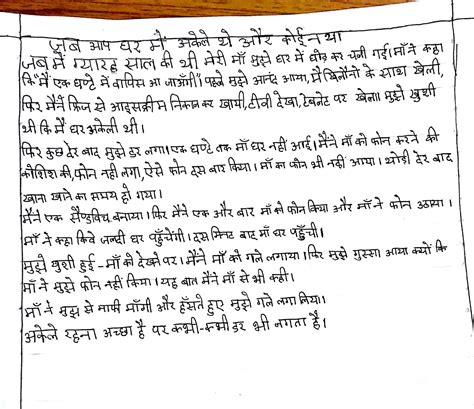 जब आप घर में अकेले थे और कोई न था
जब में ग्यारह साल की थी मेरी माँ मुझे घर में छोड़ कर चली गई। माँ ने कहा
कि "मैं एक घण्टे में वापिस आ जाऊँगी" पहले मुझे आनंद आया, मैं खिलौनों के साथ खेली,
फिर मैंने फ्रिज से आइसक्रीम निकाल कर खायी, टीवी देखा, टेबलेट पर खेला। मुझे खुशी
थी कि मैं घर अकेली थी।
फिर कुछ देर बाद मुझे डर लगा। एक घण्टे तक माँ घर नहीं आई। मैंने माँ को फोन करने की
कोशिश की, फोन नहीं लगा, ऐसे फोन दस बार किया। माँ का फोन भी नहीं आया। थोड़ी देर बाद
खाना खाने का समय हो गया।
मैंने एक सैण्डविच बनाया। फिर मैंने एक और बार माँ को फोन किया और माँ ने फोन उठाया।
माँ ने कहा कि वे जल्दी घर पहुँचेंगी। दस मिनट बाद माँ घर पहुँची।
मुझे खुशी हुई - माँ को देखने पर। मैंने माँ को गले लगाया। फिर मुझे गुस्सा आया क्यों कि
माँ ने मुझे फोन नहीं किया। यह बात मैंने माँ से भी कही।
माँ ने मुझ से माफी माँगी और हँसते हुए मुझे गले लगा लिया।
अकेले रहना अच्छा है पर कभी-कभी डर भी लगता है।